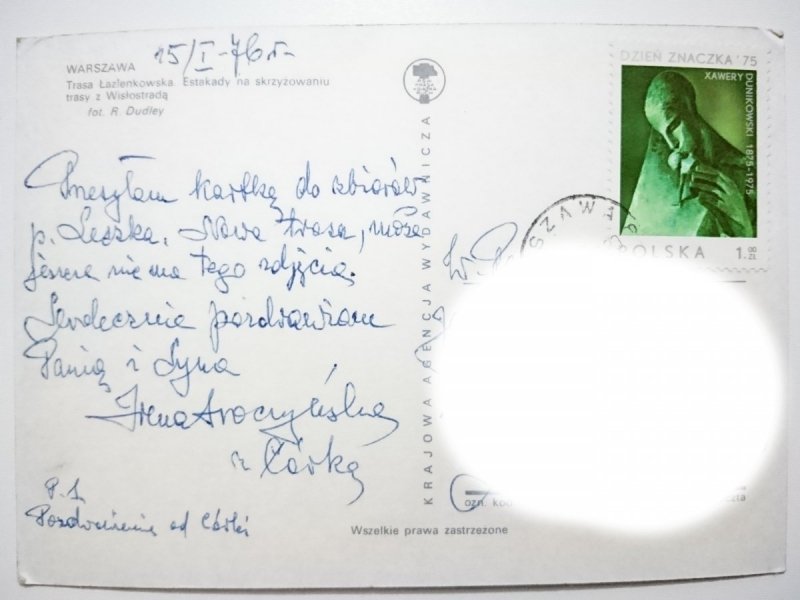 15/I-76 r.
WARSZAWA
Trasa Łazienkowska. Estakady na skrzyżowaniu
trasy z Wisłostradą
fot. R. Dudley
Przesyłam kartkę do zbiorów
p. Leszka. Nowa trasa, może
jeszcze nie ma tego zdjęcia.
Serdecznie pozdrawiam
Panią i Syna
Irena
z Córką
P.S
Pozdrowienia od Córki
KRAJOWA AGENCJA WYDAWNICZA
Wszelkie prawa zastrzeżone
DZIEŃ ZNACZKA '75
XAWERY DUNIKOWSKI 1875-1975
POLSKA 1.00 ZŁ
W. P.
ozn. kod